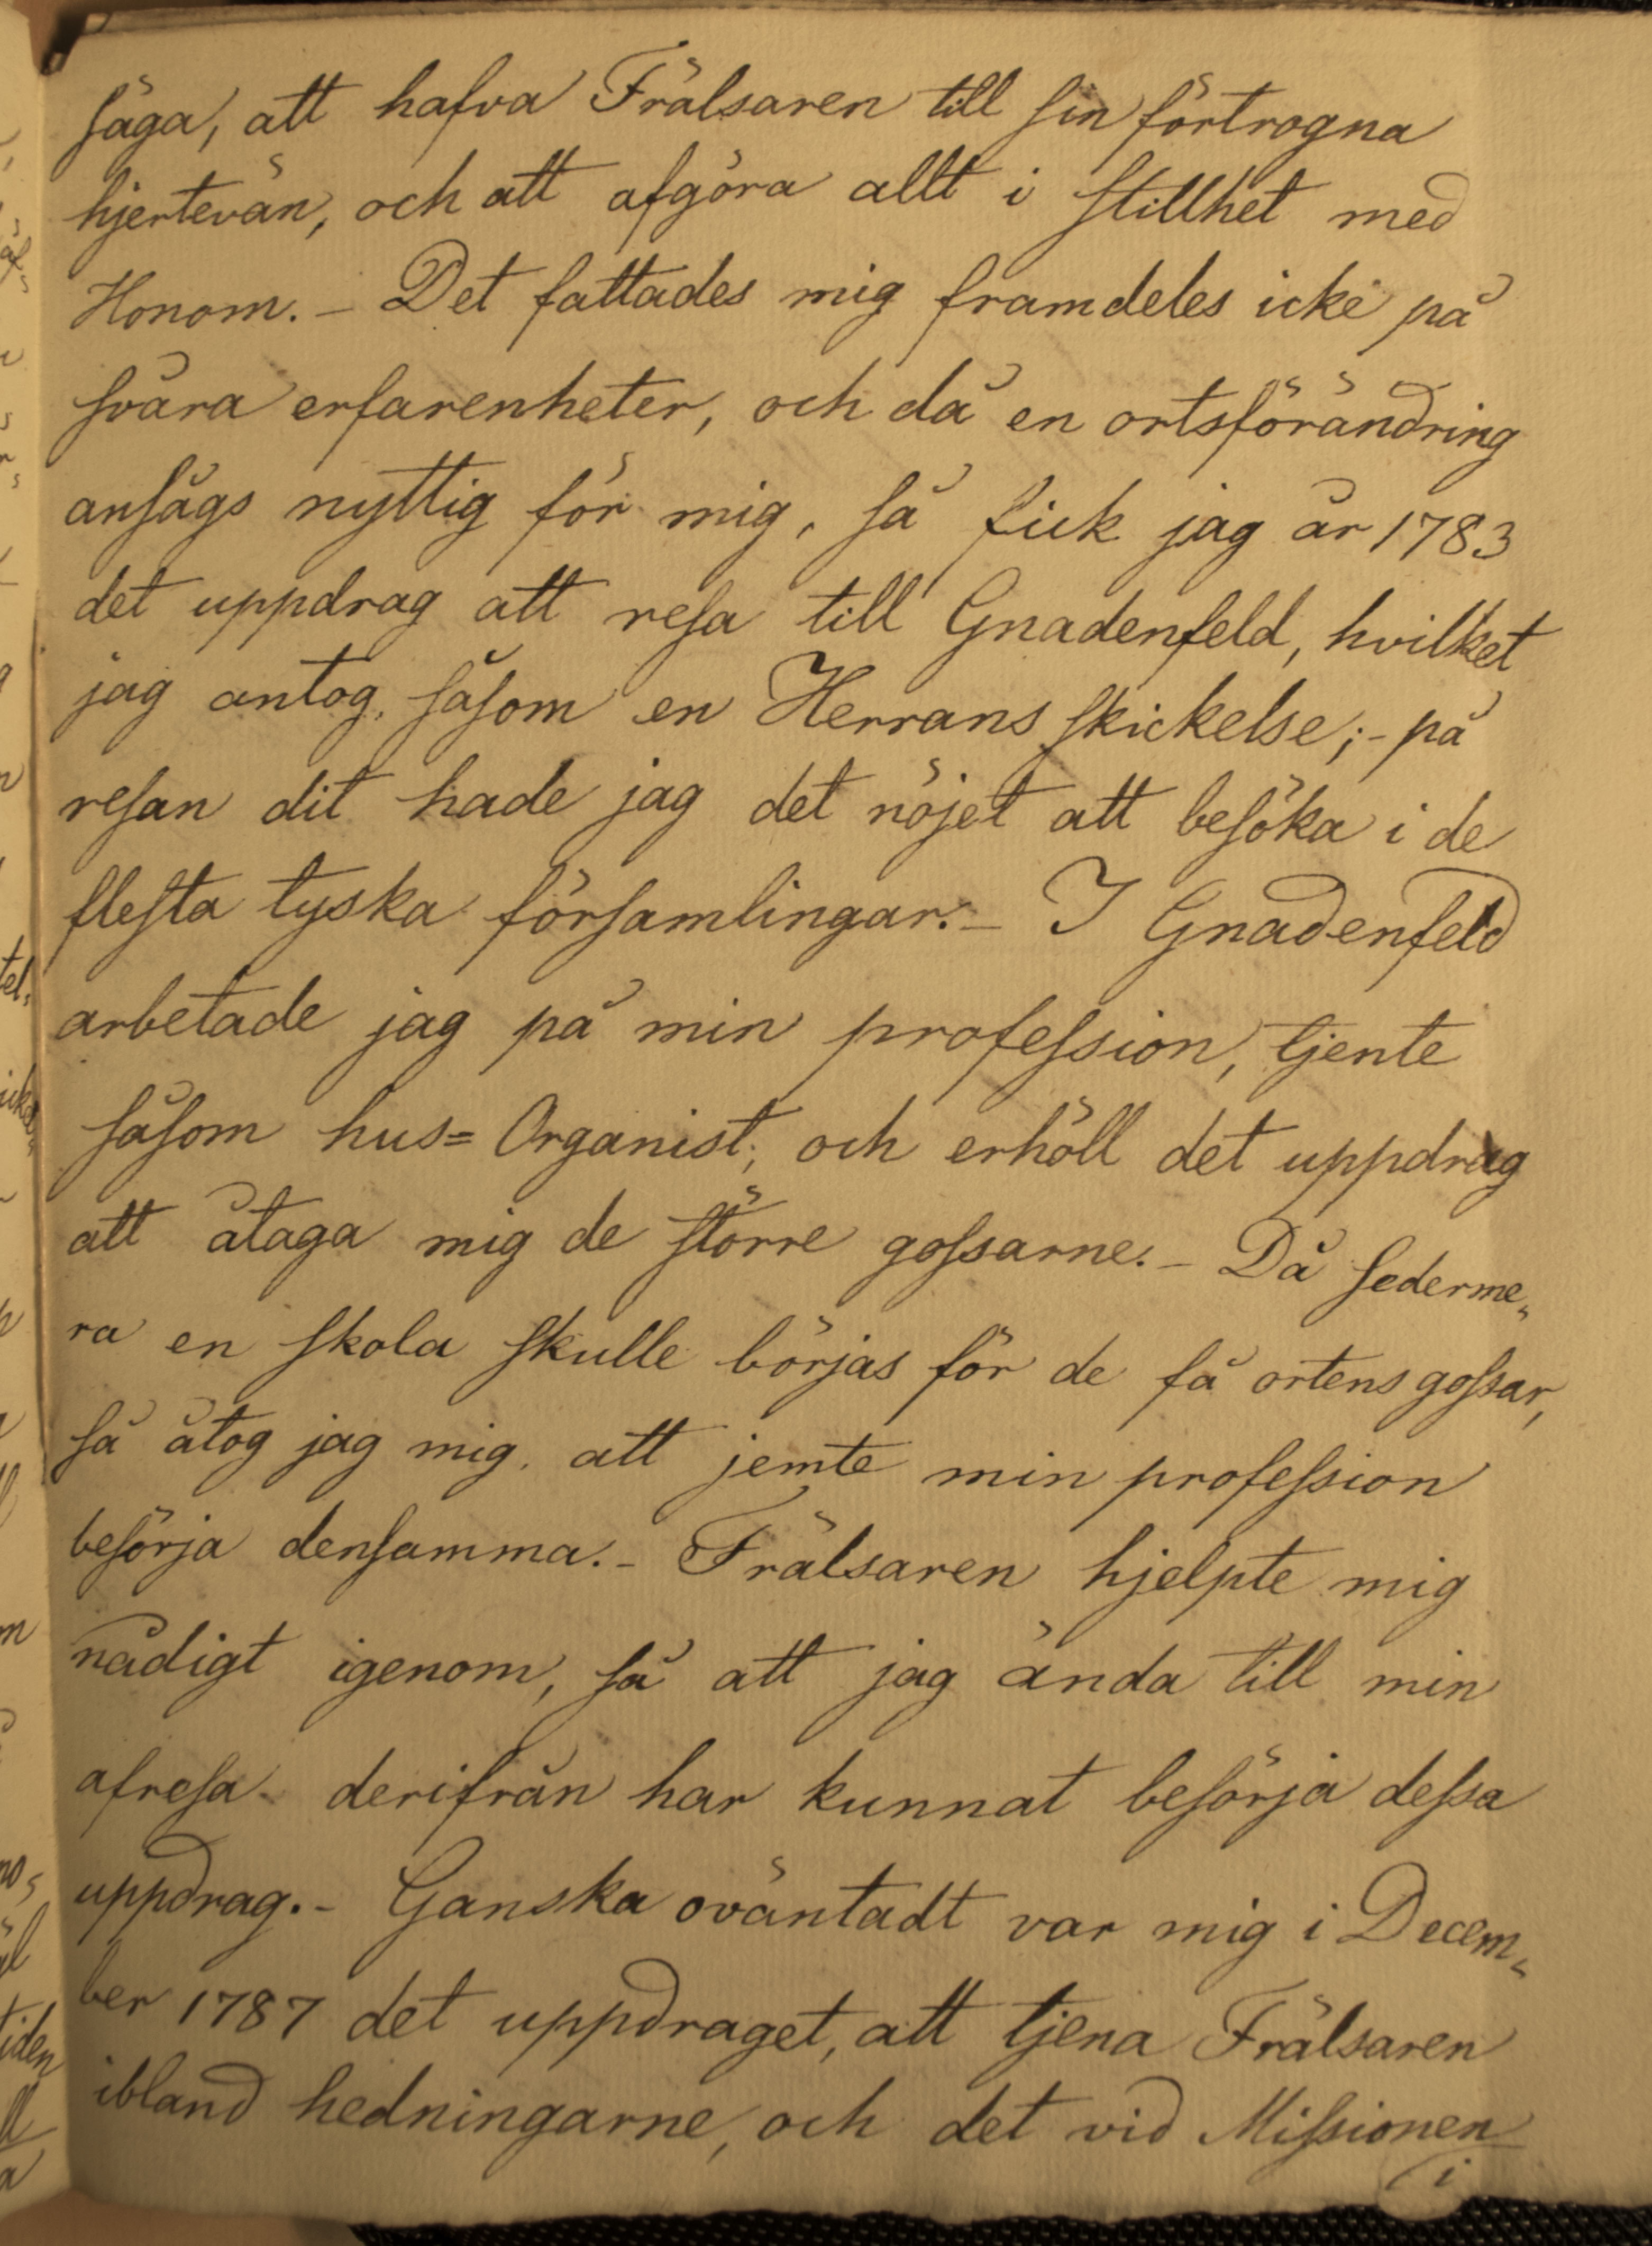 säga, att hafva Frälsaren till sin förtrogna
hjertevän, och att afgöra allt i stillhet med
Honom. – Det fattades mig framdeles icke på
svåra erfarenheter, och då en ortsförändring
ansågs nyttig för mig, så fick jag år 1783
det uppdrag att resa till Gnadenfeld, hvilket
jag antog, såsom en Herrans skickelse; – på
resan dit hade jag det nöjet att besöka i de
flesta tyska församlingar. – I Gnadenfeld
arbetade jag på min profession, tjente
såsom hus= Organist, och erhöll det uppdrag
att åtaga mig de större gossarne. – Då sederme„
ra en skola skulle börjas för de få ortens gossar,
så åtog jag mig, att jemte min profession
besörja densamma. – Frälsaren hjelpte mig
nådigt igenom, så att jag ända till min
afresa derifrån har kunnat besörja dessa
uppdrag. – Ganska oväntadt var mig i Decem„
ber 1787 det uppdraget, att tjena Frälsaren
ibland hedningarne, och det vid Missionen
i